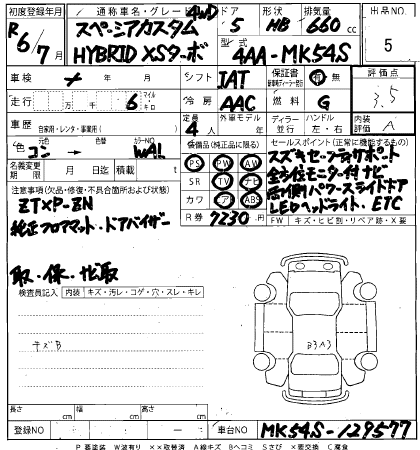 初度登録年月 通称車名・グレード 4WD ドア 形状 排気量 出品NO
R 6/7月 スペーシアカスタム 5 HB 660cc 5
HYBRID XSターボ 型式 4AA-MK54S
車検 年 月 シフト IAT 保証書 有・無 評価点
走行 十万 万 千 6 マイル キロ 冷房 AAC 燃料 G 3.5
車歴 自家用・レンタ・事業用( ) 定員 4人 外車モデル 年 ディーラー 並行 ハンドル 左・右 内装 A
色 元色 コン → 色替 カラーNO WA1 装備品(純正品に限る) セールスポイント(正常に機能するもの)
名義変更期限 月 日 積載 t PS PW AW スズキセーフティサポート
注意事項(欠品・修復・不具合箇所および状態) SR TV ナビ 全方位モニター付ナビ
ZTXP-ZN カワ ABS 両側パワースライドドア
純正フロアマット・ドアバイザー R券 7230円 LEDヘッドライト、ETC
FW キズ・ヒビ割・リペア跡・X要
取・保・ナビ取
検査員記入 内装 キズ・汚レ・コゲ・穴・スレ・キレ
キズB
B3A3
長さ cm 幅 cm 高さ cm
登録NO 車台NO MK54S-129577
P要塗装 W波有り ××取替済 A線キズ Bヘコミ Sさび ×要交換 C腐食